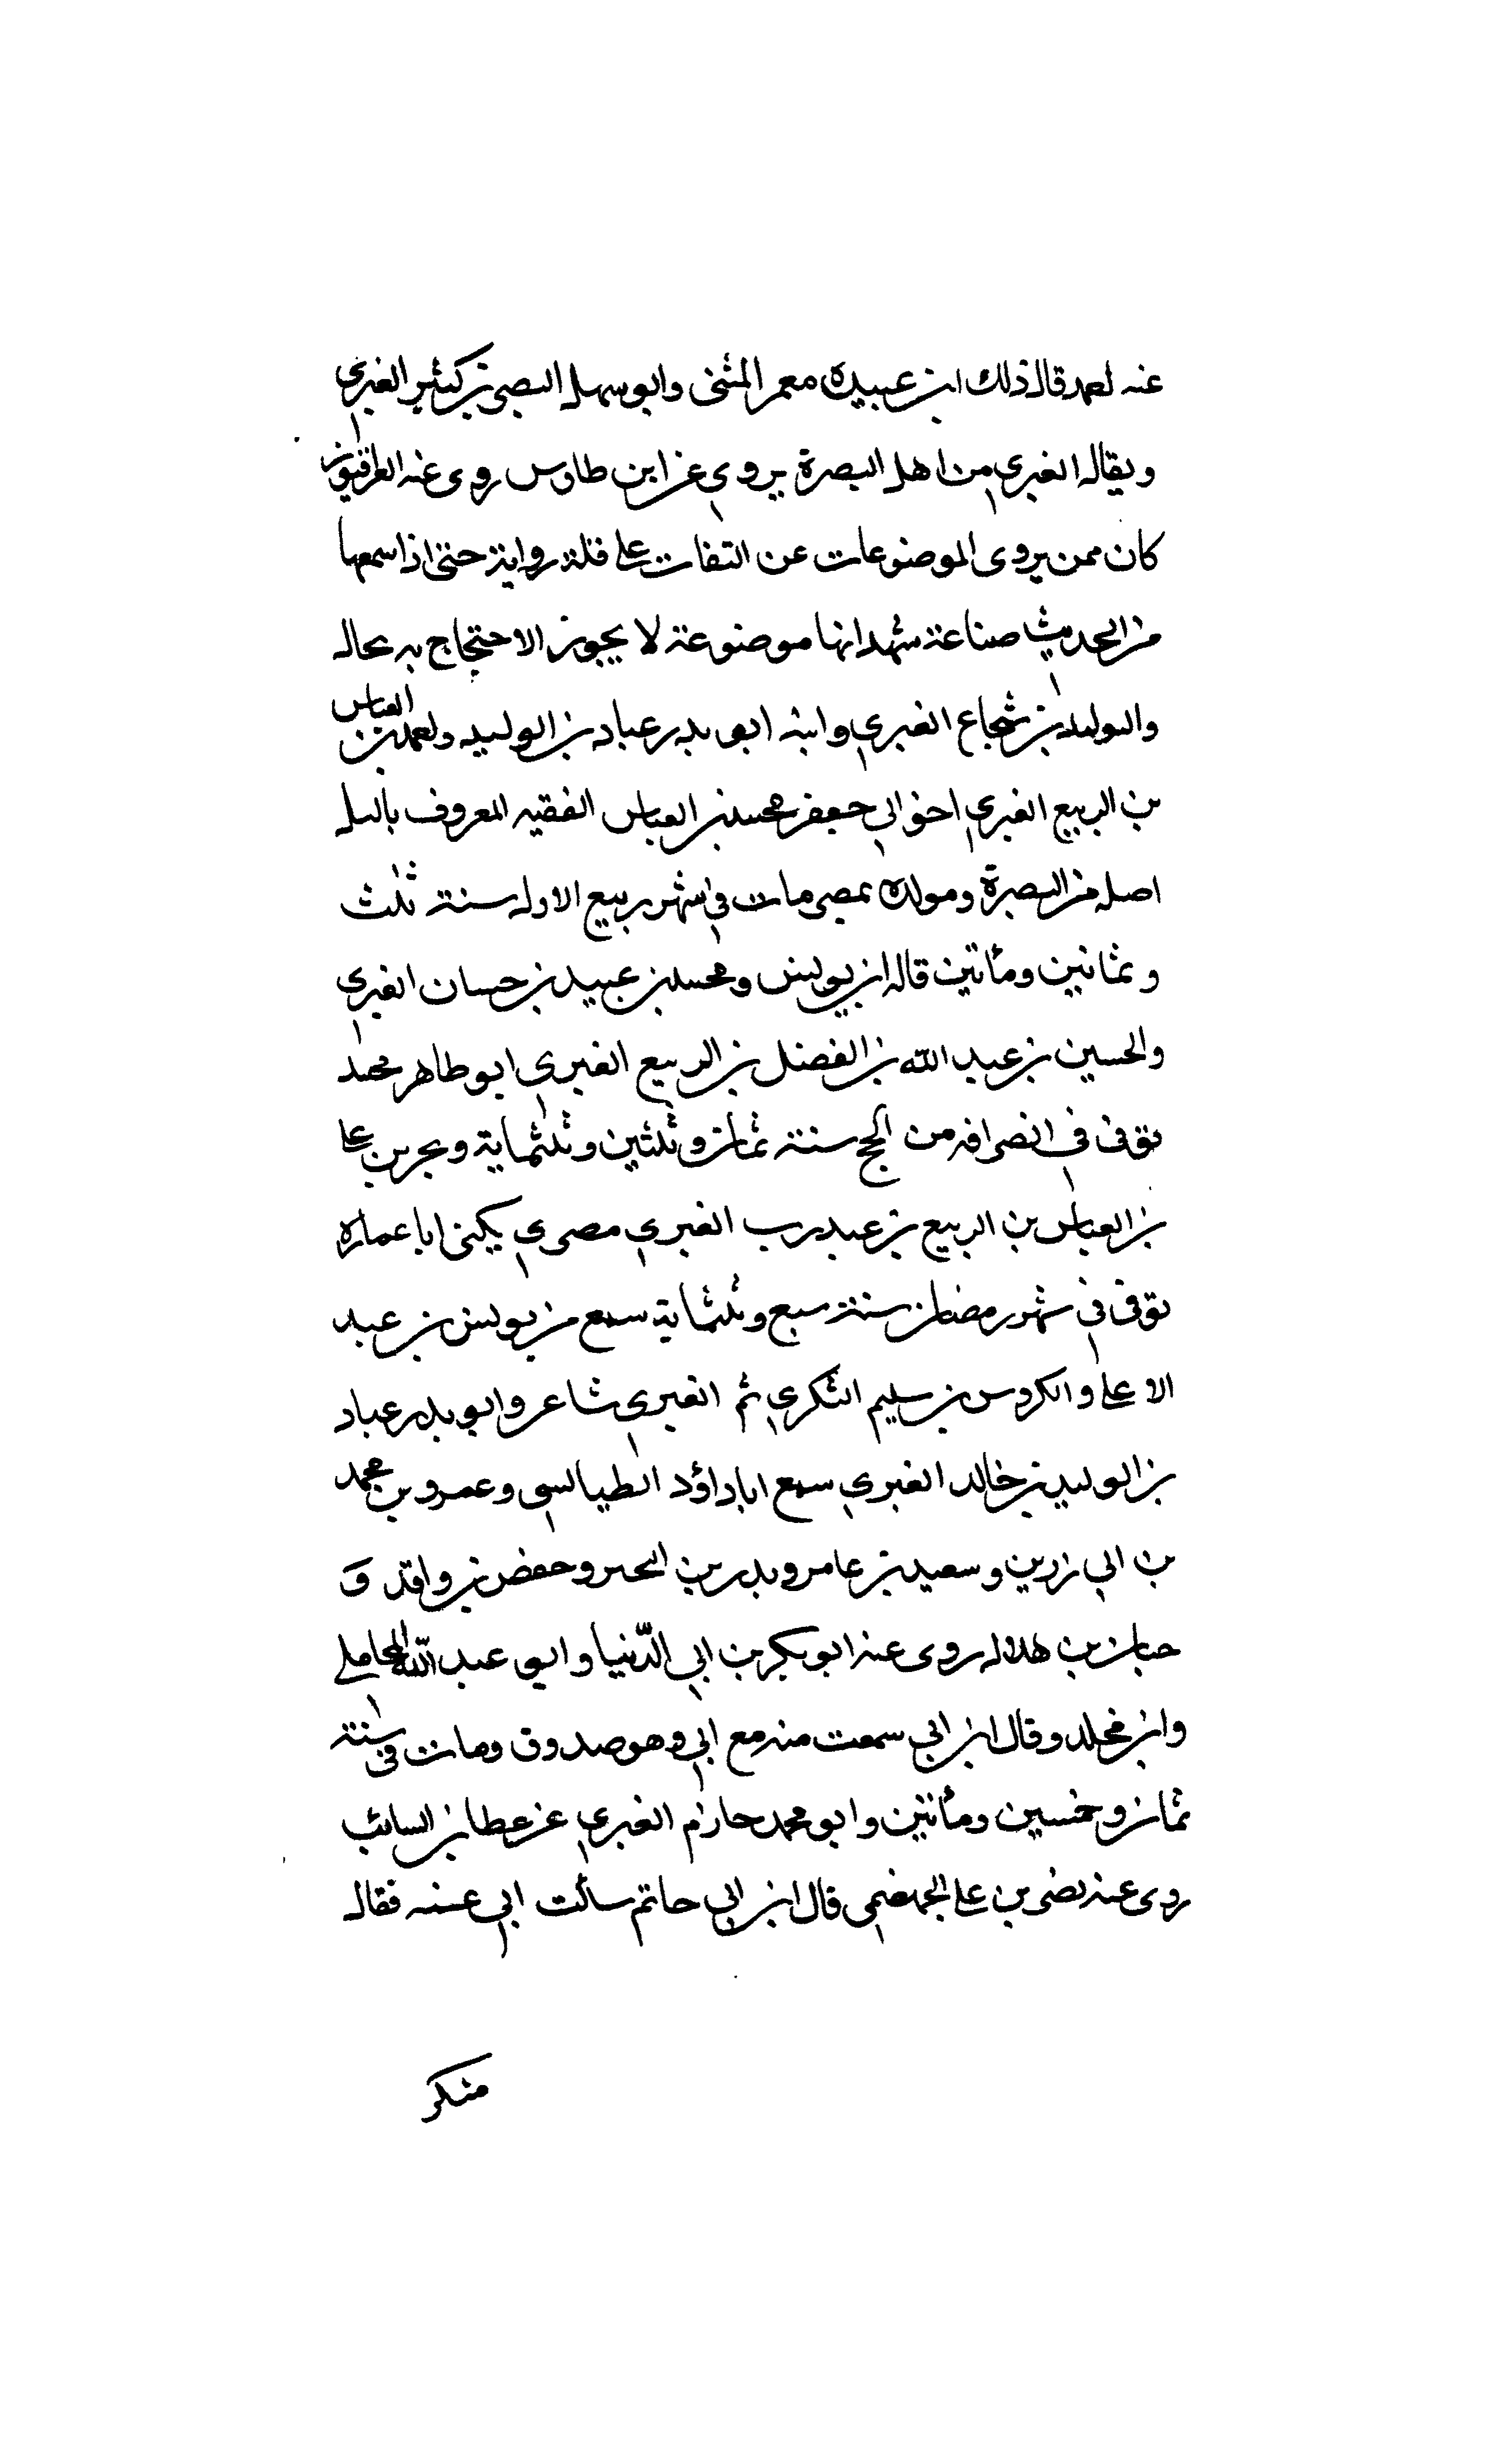 عنه لعمد قال ذلك ابن عبيده معمر المثنى وابو سهل البصرى بن كثير الغبري
ويقال الغبري من اهل البصرة يروي عن ابن طاوس روى عنه العراقيون
كان ممن يروى الموضوعات عن الثقات على قلة رواية حتى اذا سمعها
من الحديث صناعة شهد انها موضوعة لا يجوز الاحتجاج به بحال
والوليد بن شجاع الغبري وابنه ابو بدر عباد بن الوليد ولعمد بن العباس
بن الربيع الغبري اخو ابي جعفر محمد بن العباس الفقيه المعروف بالىل
اصله من البصرة ومولده بمصر مات في شهر ربيع الاول سنة ثلث
وثمانين ومأتين قاله ابن يونس ومحمد بن عبيد بن حسان الغبري
والحسين بن عبد الله بن الفضل بن الربيع الغبري ابو طاهر محمد
توفى فى انصرافه من الحج سنة ثمان وثلثين وثلثماية وبحر بن على
بن العباس بن الربيع بن عبد رب الغبري مصري يكنى ابا عماره
توفى في شهر رمضان سنة سبع وثلثماية سمع من يونس بن عبد
الاعلى والكروس بن سليم الشكري ثم الغبري شاعر وابو بدر عباد
بن الوليد بن خالد الغبري سمع ابا داؤد الطيالسي وعمرو بن محمد
بن ابي زرين وسعيد بن عامر وبدر بن المحبر وحفص بن واقد و
حبان بن هلال روى عنه ابو بكر بن ابي الدنيا وابو عبد الله المحاملي
وابن مخلد وقال ابن ابي سمعت منه مع ابي وهو صدوق ومات فى سنة
ثمان وخمسين ومأتين وابو محمد حازم الغبري عن عطا بن السائب
روى عنه نصر بن على الجهضمي قال ابن ابي حاتم سألت ابي عنه فقال
منكر